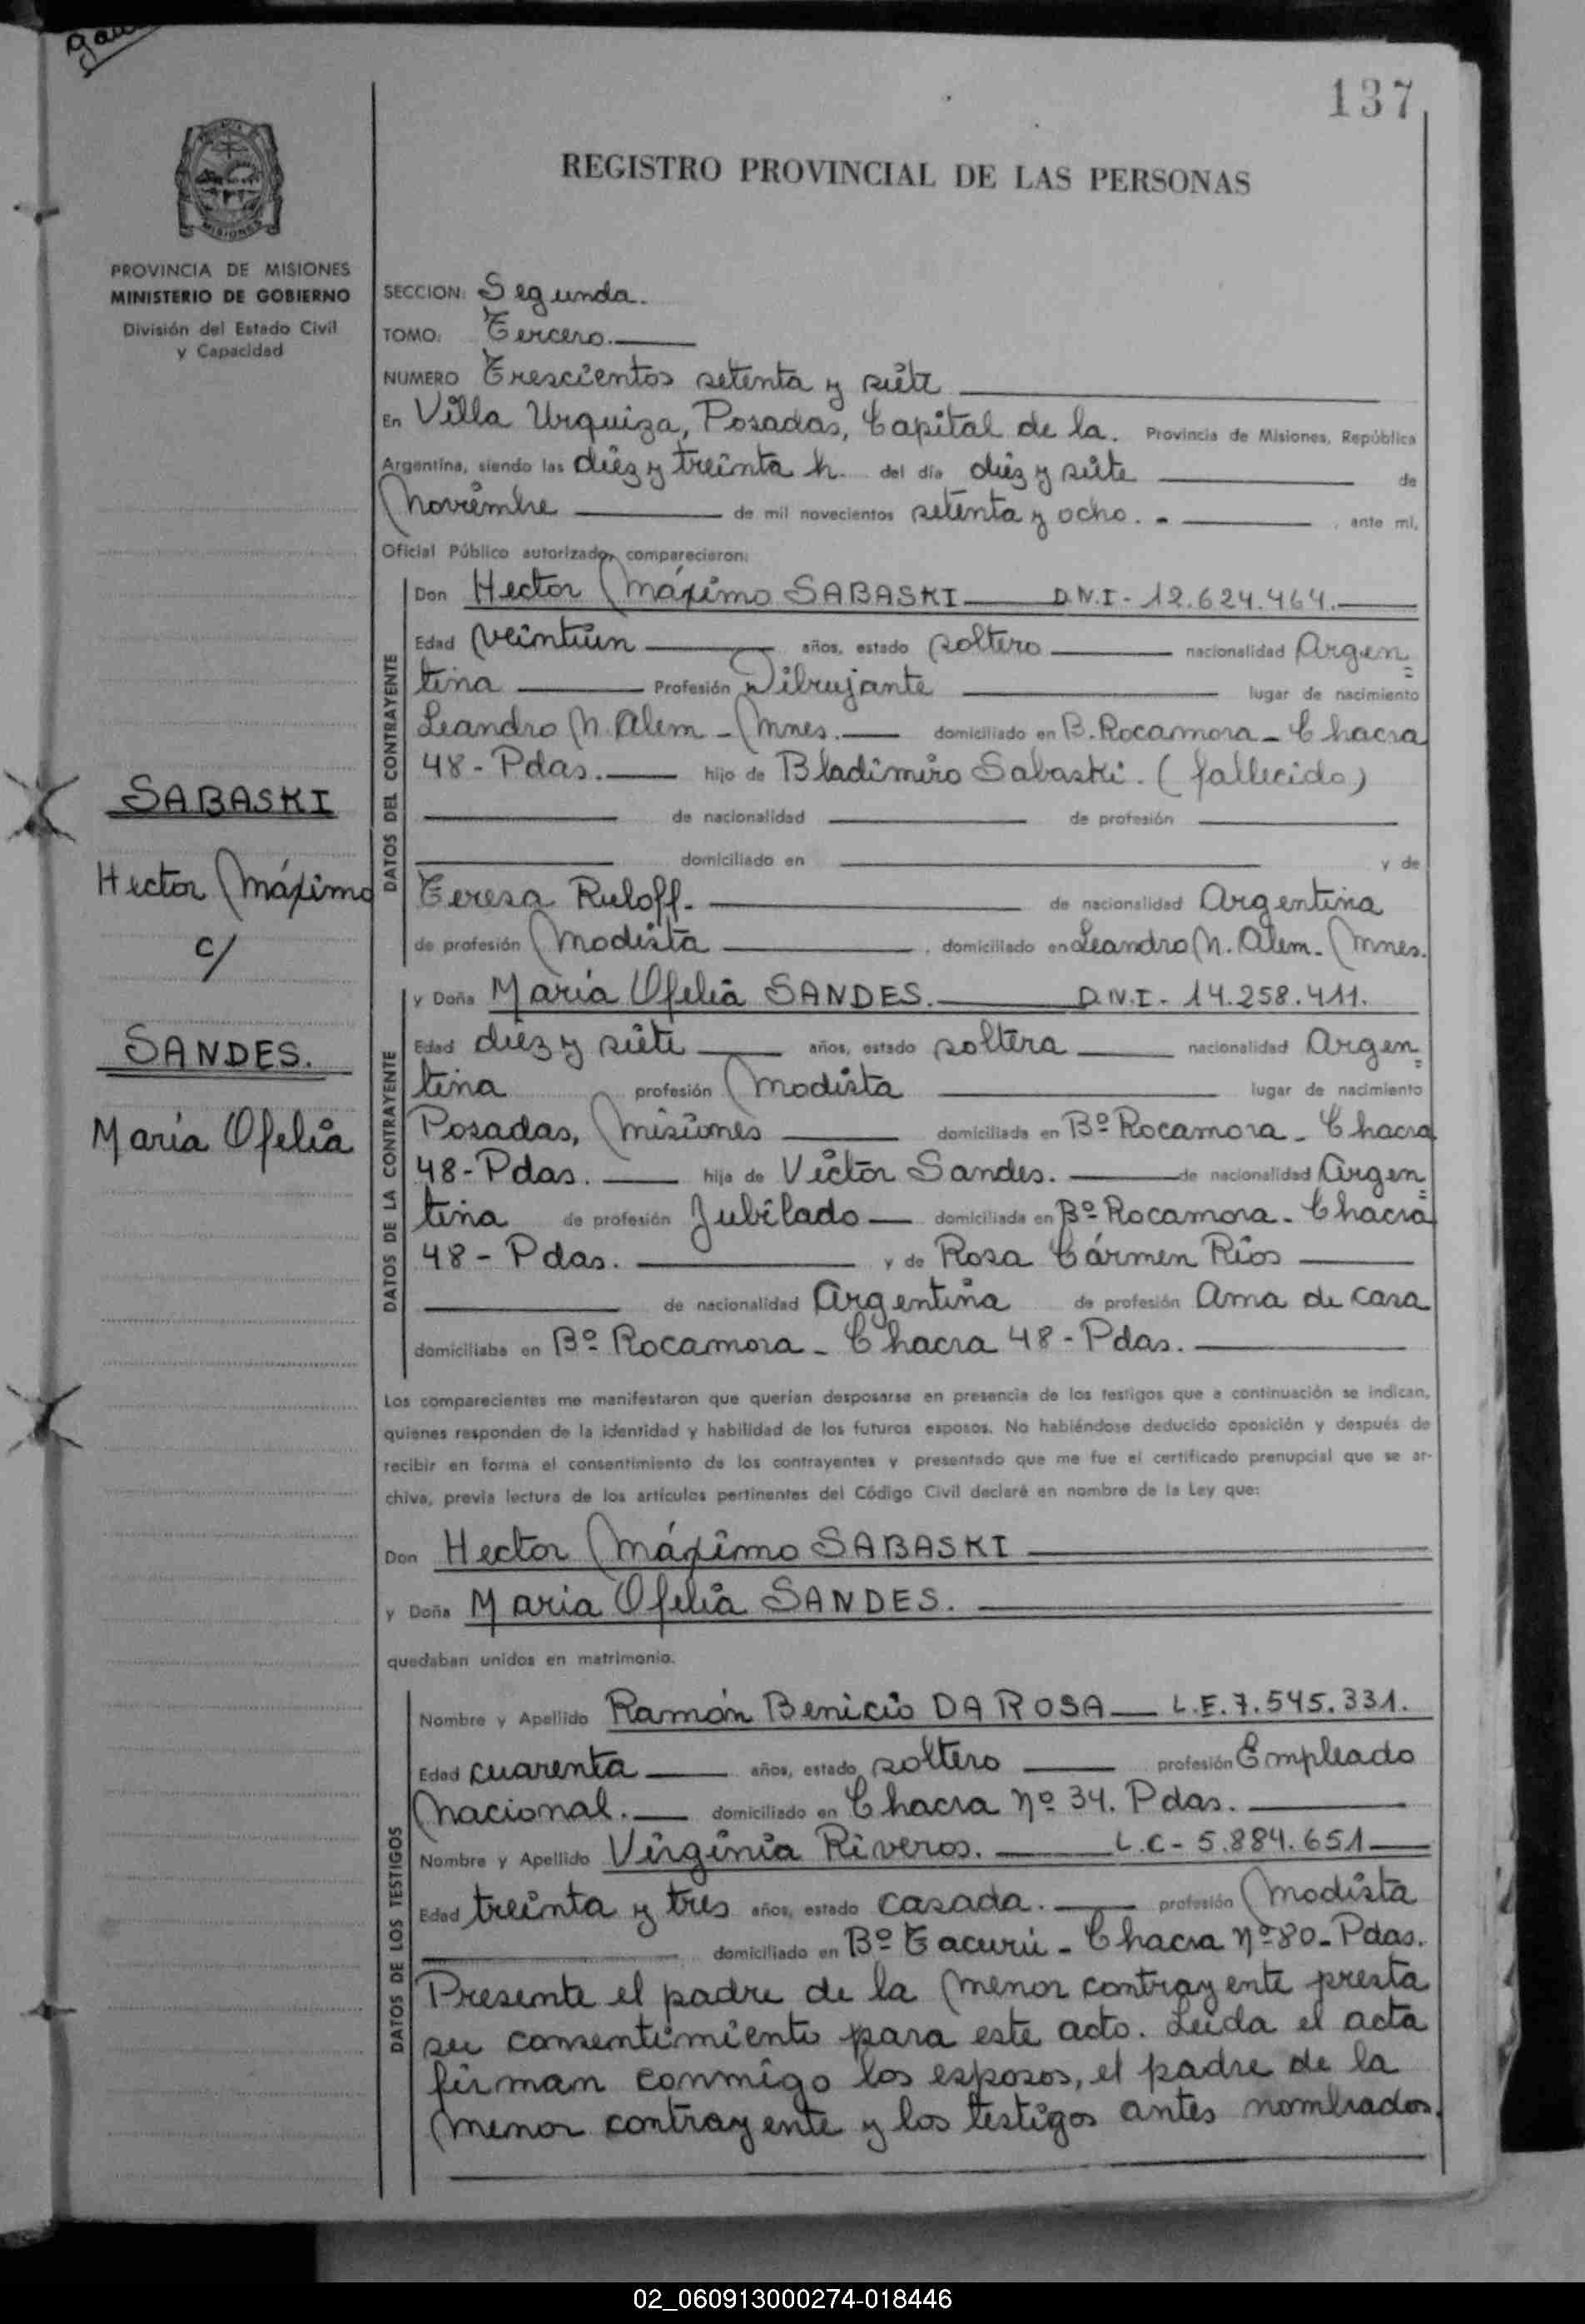 137
REGISTRO PROVINCIAL DE LAS PERSONAS
MISIONES
PROVINCIA DE MISIONES
MINISTERIO DE GOBIERNO
División del Estado Civil
y Capacidad
SECCION: Segunda.
TOMO: Tercero.
NUMERO Trescientos setenta y siete
En Villa Urquiza, Posadas, Capital de la. Provincia de Misiones, República
Argentina, siendo las diez y treinta h. del día diez y siete de
Noviembre de mil novecientos setenta y ocho. - , ante mí,
Oficial Público autorizado, comparecieron:
DATOS DEL CONTRAYENTE
Don Hector Máximo SABASKI D.N.I - 12.624.464.
Edad veintiun años, estado soltero nacionalidad Argen=
tina Profesión Dibujante lugar de nacimiento
Leandro N. Alem - Mnes. domiciliado en B. Rocamora - Chacra
48 - Pdas. hijo de Bladimiro Sabaski. (fallecido)
de nacionalidad de profesión
domiciliado en y de
Teresa Ruloff. de nacionalidad Argentina
de profesión Modista , domiciliado en Leandro N. Alem - Mnes.
SABASKI
Hector Máximo
c/
SANDES.
María Ofelia
DATOS DE LA CONTRAYENTE
y Doña María Ofelia SANDES. D.N.I - 14.258.411.
Edad diez y siete años, estado soltera nacionalidad Argen=
tina profesión Modista lugar de nacimiento
Posadas, Misiones domiciliada en Bº Rocamora - Chacra
48 - Pdas. hija de Victor Sandes. de nacionalidad Argen=
tina de profesión Jubilado domiciliada en Bº Rocamora - Chacra
48 - Pdas. y de Rosa Cármen Ríos
de nacionalidad Argentina de profesión Ama de casa
domiciliaba en Bº Rocamora - Chacra 48 - Pdas.
Los comparecientes me manifestaron que querían desposarse en presencia de los testigos que a continuación se indican,
quienes responden de la identidad y habilidad de los futuros esposos. No habiéndose deducido oposición y después de
recibir en forma el consentimiento de los contrayentes y presentado que me fue el certificado prenupcial que se ar-
chiva, previa lectura de los artículos pertinentes del Código Civil declaré en nombre de la Ley que:
Don Hector Máximo SABASKI
y Doña María Ofelia SANDES.
quedaban unidos en matrimonio.
DATOS DE LOS TESTIGOS
Nombre y Apellido Ramón Benicio DA ROSA L.E. 7.545.331.
Edad cuarenta años, estado soltero profesión Empleado
Nacional. domiciliado en Chacra Nº 34. Pdas.
Nombre y Apellido Virginia Riveros. L.C - 5.884.651
Edad treinta y tres años, estado casada. profesión Modista
domiciliado en Bº Tacurú - Chacra Nº 80 - Pdas.
Presente el padre de la menor contrayente presta
su consentimiento para este acto. Leída el acta
firman conmigo los esposos, el padre de la
menor contrayente y los testigos antes nombrados.
02_060913000274-018446